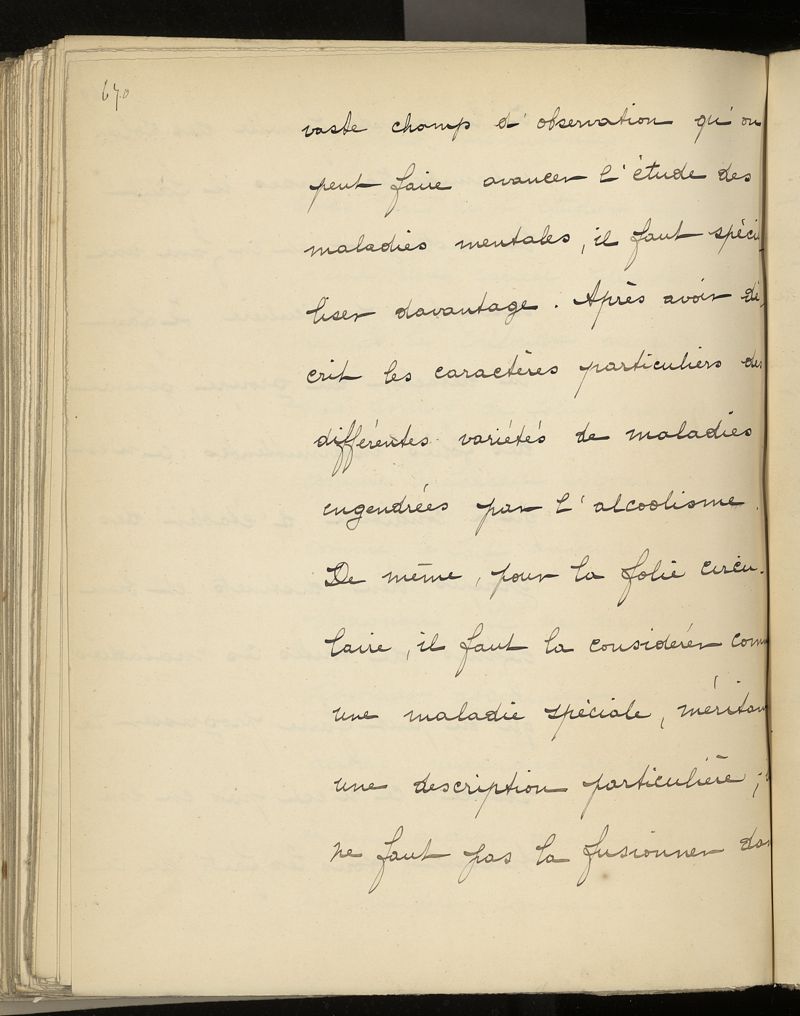 670
vaste champ d'observation qu'on
peut faire avancer l'étude des
maladies mentales, il faut spéci
liser davantage. Après avoir dé
crit les caractères particuliers des
différentes variétés de maladies
engendrées par l'alcoolisme.
De même, pour la folie circu-
laire, il faut la considérer comm
une maladie spéciale, méritan
une description particulière ;
ne faut pas la fusionner dan